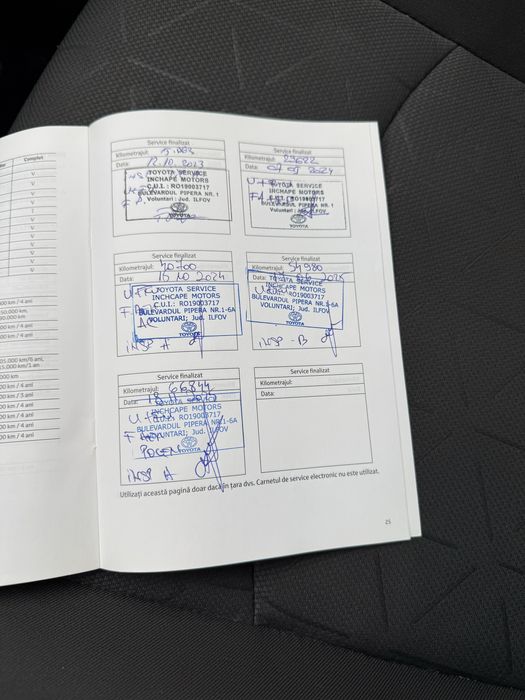 Complet
V
V
V
V
I
V
V
V
V
V
000 km / 4 ani
00 km / 4 ani
00 km / 4 ani
05.000 km/6 ani,
15.000 km/1 an
000 km
00 km / 4 ani
00 km / 3 ani
00 km / 4 ani
00 km / 4 ani
00 km / 4 ani
00 km / 4 ani
Service finalizat
Kilometrajul:
Data: 12.10.2023
TOYOTA SERVICE
INCHCAPE MOTORS
C.U.I.: RO19003717
BULEVARDUL PIPERA NR. 1
Voluntari: Jud. ILFOV
TOYOTA
Service finalizat
Kilometrajul: 23622
Data: 2024
TOYOTA SERVICE
INCHCAPE MOTORS
C.U.I.: RO19003717
BULEVARDUL PIPERA NR. 1
Voluntari: Jud. ILFOV
TOYOTA
Service finalizat
Kilometrajul: 40100
Data: 16 10 2024
U+FU
TOYOTA SERVICE
INCHCAPE MOTORS
C.U.I.: RO19003717
BULEVARDUL PIPERA NR.1-6A
VOLUNTARI; Jud. ILFOV
TOYOTA
INSP A
Service finalizat
Kilometrajul: 54980
Data:
TOYOTA SERVICE
INCHCAPE MOTORS
C.U.I.: RO19003717
BULEVARDUL PIPERA NR.1-6A
VOLUNTARI; Jud. ILFOV
TOYOTA
INSP - B
Service finalizat
Kilometrajul: 66844
Data: 18
TOYOTA SERVICE
INCHCAPE MOTORS
C.U.I.: RO19003717
BULEVARDUL PIPERA NR.1-6A
VOLUNTARI; Jud. ILFOV
TOYOTA
POLEN
INSP A
Service finalizat
Kilometrajul:
Data:
Utilizați această pagină doar dacă în țara dvs. Carnetul de service electronic nu este utilizat.
25